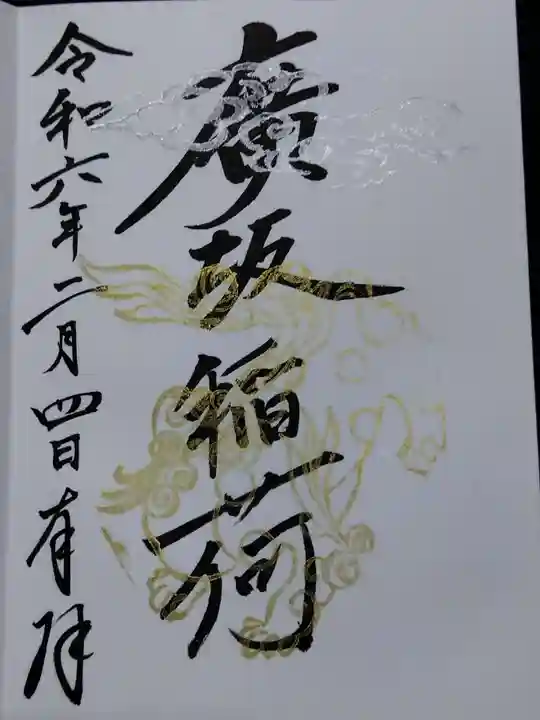 廣坂稲荷
令和六年二月四日有拜